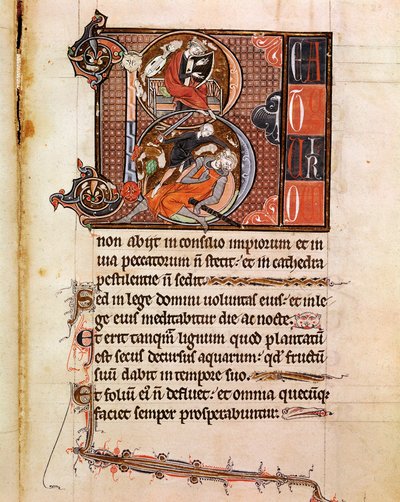 B
non abijt in consilio impiorum et in
uia peccatorum n̄ stetit · et in cathedra
pestilentie n̄ sedit ·
Sed in lege domini uoluntas eius · et in le
ge eius meditabitur die ac nocte ·
Et erit tanq̄m lignum quod plantatū
est secus decursus aquarum · qđ fructū
suū dabit in tempore suo ·
Et foliū ei᾽ n̄ defluet · et omnia quecūq;
faciet semper prosperabuntur ·